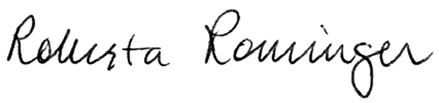 Roberta Rominger